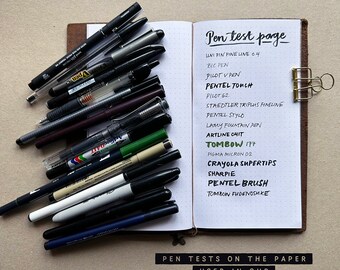 Pen test page
UNI PIN FINE LINE 0.4
BIC PEN
PILOT V PEN
PENTEL TOUCH
PILOT G2
STAEDTLER TRIPLUS FINELINE
PENTEL STYLO
LAMY FOUNTAIN PEN
ARTLINE
TOMBOW 177
PIGMA MICRON 05
CRAYOLA SUPERTIPS
SHARPIE
PENTEL BRUSH
TOMBOW FUDENOSUKE
PEN TESTS ON THE PAPER
USED IN OUR